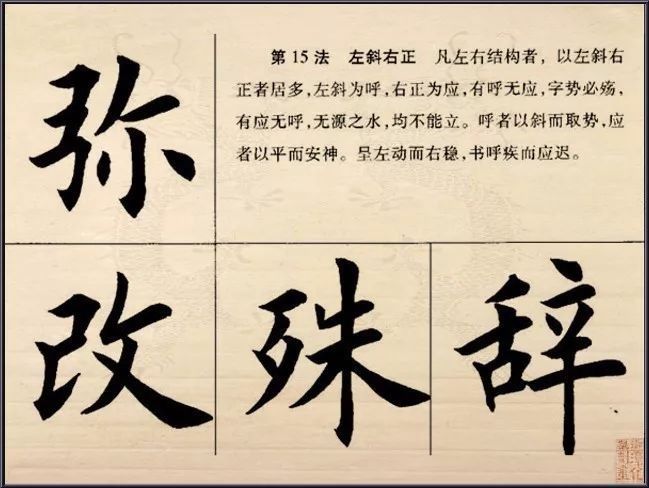 弥
第15法 左斜右正 凡左右结构者，以左斜右
正者居多，左斜为呼，右正为应，有呼无应，字势必殇，
有应无呼，无源之水，均不能立。呼者以斜而取势，应
者以平而安神。呈左动而右稳，书呼疾而应迟。
改 殊 辞